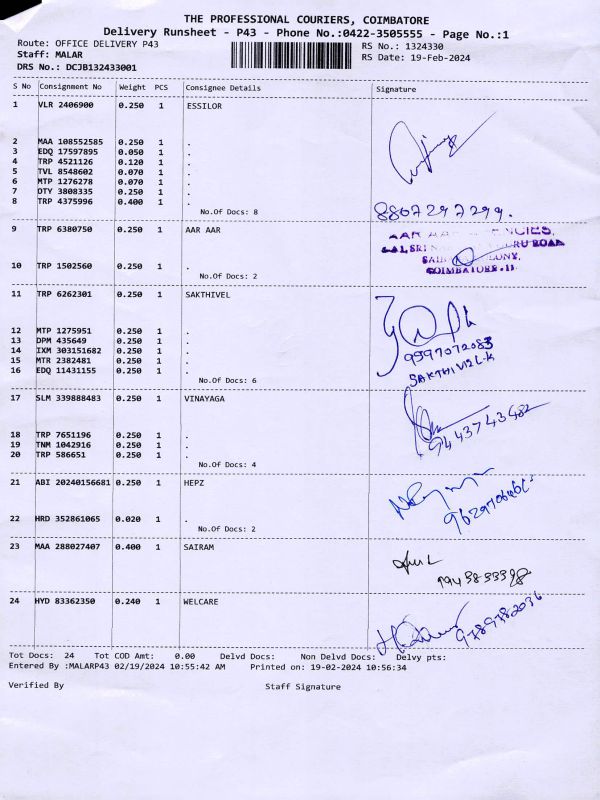 THE PROFESSIONAL COURIERS, COIMBATORE
Delivery Runsheet - P43 - Phone No.:0422-3505555 - Page No.:1
Route: OFFICE DELIVERY P43
RS No.: 1324330
Staff: MALAR
RS Date: 19-Feb-2024
DRS No.: DCJB132433001
S No Consignment No Weight PCS Consignee Details Signature
1 VLR 2406900 0.250 1 ESSILOR
2 MAA 108552585 0.250 1 .
3 EDQ 17597895 0.050 1 .
4 TRP 4521126 0.120 1 .
5 TVL 8548602 0.070 1 .
6 MTP 1276278 0.070 1 .
7 OTY 3808335 0.250 1 .
8 TRP 4375996 0.400 1 .
No.Of Docs: 8
8807297299.
9 TRP 6380750 0.250 1 AAR AAR
COIMBATORE-11
10 TRP 1502560 0.250 1 .
No.Of Docs: 2
11 TRP 6262301 0.250 1 SAKTHIVEL
12 MTP 1275951 0.250 1 .
13 DPM 435649 0.250 1 .
14 IXM 303151682 0.250 1 .
15 MTR 2382481 0.250 1 .
16 EDQ 11431155 0.250 1 .
No.Of Docs: 6
SAKTHIVEL-K
17 SLM 339888483 0.250 1 VINAYAGA
18 TRP 7651196 0.250 1 .
19 TNM 1042916 0.250 1 .
20 TRP 586651 0.250 1 .
No.Of Docs: 4
21 ABI 20240156681 0.250 1 HEPZ
22 HRD 352861065 0.020 1 .
No.Of Docs: 2
23 MAA 288027407 0.400 1 SAIRAM
24 HYD 83362350 0.240 1 WELCARE
9789782036
Tot Docs: 24 Tot COD Amt: 0.00 Delvd Docs: Non Delvd Docs: Delvy pts:
Entered By :MALARP43 02/19/2024 10:55:42 AM Printed on: 19-02-2024 10:56:34
Verified By Staff Signature